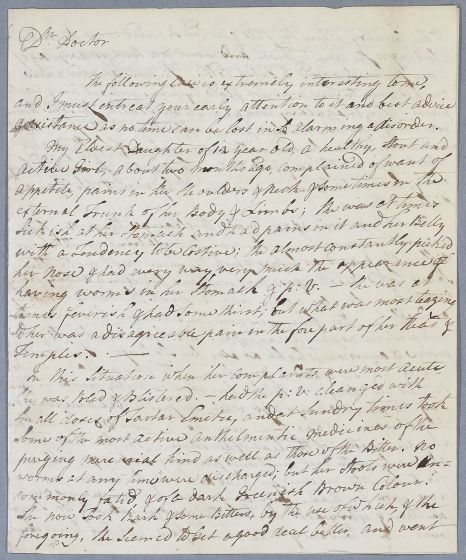 Dr. Doctor
The following case is extremely interesting to me
and I must entreat your early attention to it and best advice
& assistance as no time can be lost in so alarming a disorder.
My eldest Daughter of 12 year old a healthy stout and
active Girl, about two months ago complain'd of want of
appetite pains in her Shoulders & Neck & sometimes in the
external trunk of her Body & Limbs; she was at times
sickish at her stomach and had pains in it and her Belly
with a tendency to be Costive; she almost constantly picked
her nose & had every way very much the appearance of
having worms in her Stomach & p: v: — she was at
times feverish & had some thirst; but what was most teazing
to her was a disagreeable pain in the fore part of her Head &
Temples. . —
In this situation when her complaints were most acute
she was bled & Blistered. — had the p: v: cleansed with
small doses of Tartar Emetic, and at sundry times took
some of the most active anthelmintic Medicines of the
purging mercurial kind as well as those of the Bitter. No
worms at any time were discharged; but her stools were un-
commonly fœtid & of a dark Greenish Brown Colour.
She now took Bark & some Bitters, by the use of which, & the
foregoing, she seemed to let a good deal better. and went